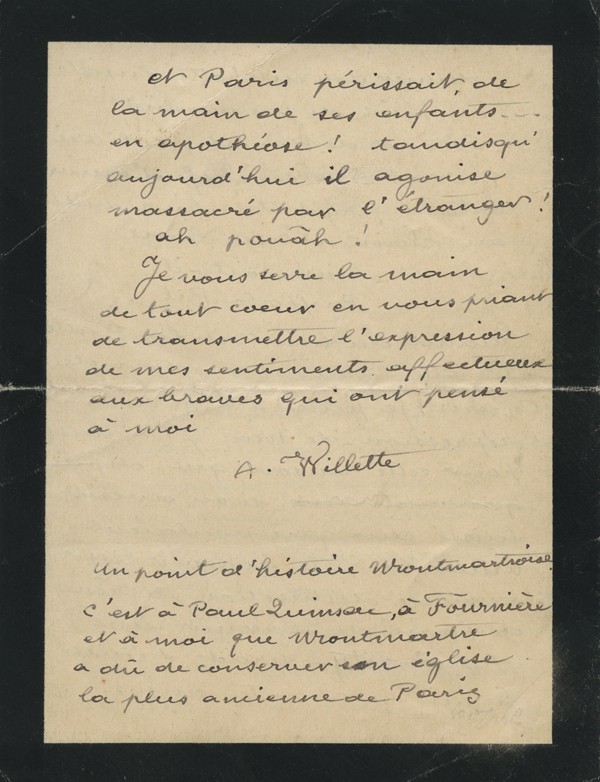 et Paris périssait de
la main de ses enfants...
en apothéose! tandisqu'
aujourd'hui il agonise
massacré par l'étranger!
ah pouâh!
Je vous serre la main
de tout coeur en vous priant
de transmettre l'expression
de mes sentiments affectueux
aux braves qui ont pensé
à moi
A. Willette
Un point d'histoire Montmartroise
c'est à Paul Quinsac, à Fournière
et à moi que Montmartre
a dû de conserver son église
la plus ancienne de Paris